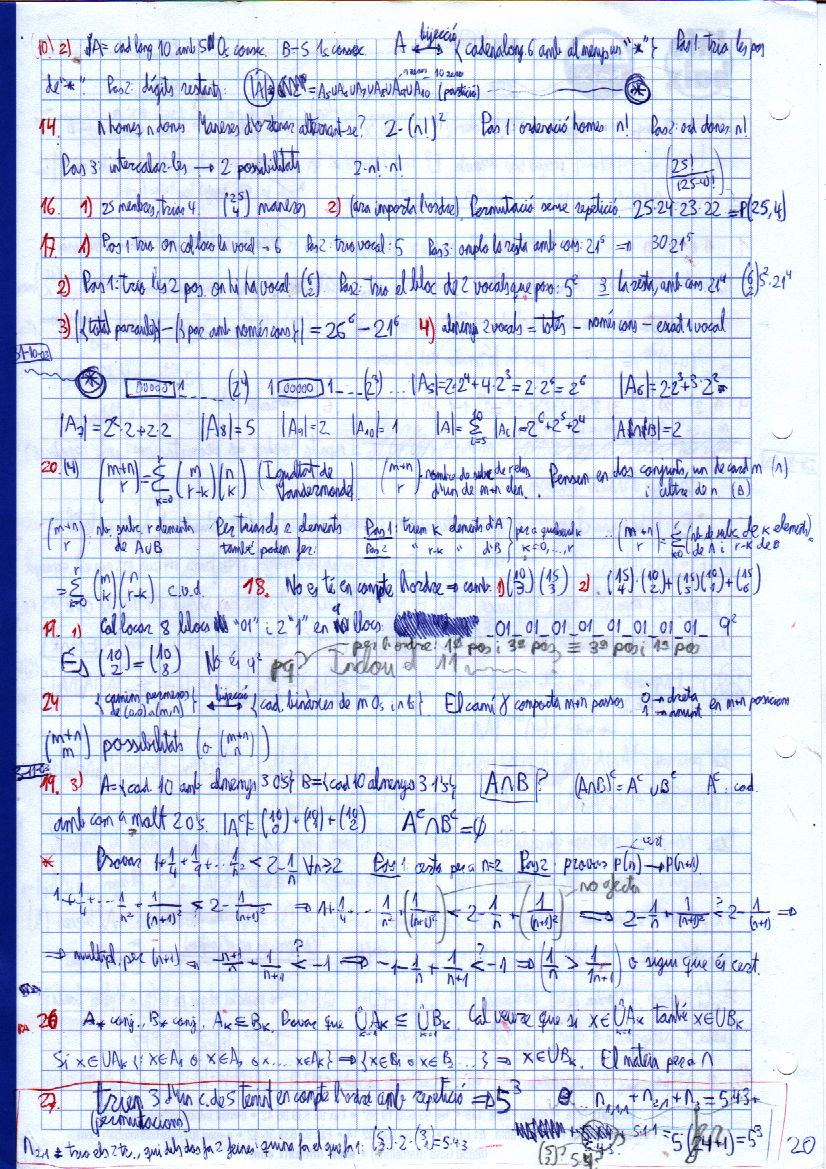 10) 2) A = cad long 10 amb 5 0s consec. B → 5 1s consec A ⟷ bijecció {cadena long. 6 amb almenys un "*"} Pas 1: tria les pos
de "*" Pas 2: dígits restants: |A| = A₅∪A₆∪A₇∪A₈∪A₉∪A₁₀ (partició) ⊛
14. n homes n dones Maneres d'ordenar alternant-se? 2·(n!)² Pas 1: ordenació homes: n! Pas 2: ord dones n!
Pas 3: intercalar-les → 2 possibilitats 2·n!·n! (25!/(25-4)!)
16. 1) 25 membres, trias 4 (25 4) maneres 2) (ara importa l'ordre) Permutació sense repetició 25·24·23·22 = P(25,4)
17. 1) Pas 1 trio on col·loco la vocal → 6 Pas 2: trio vocal: 5 Pas 3: omplo la resta amb cons: 21⁵ ⇒ 30·21⁵
2) Pas 1: trio les 2 pos. on hi ha vocal: (6 2) Pas 2: trio el bloc de 2 vocals que poso: 5² 3 la resta, amb cons 21⁴ (6 2)5²·21⁴
3) |{total paraules}| − |{par amb només cons}| = 26⁶ − 21⁶ 4) almenys 2 vocals = totes − només cons − exact 1 vocal
31-10-02
⊛ 00000 1 (2⁴) 1 00000 1 (2³) ... |A₅| = 2·2⁴+4·2³ = 2·2⁵ = 2⁶ |A₆| = 2·2³+3·2²
|A₇| = 2²·2+2·2 |A₈| = 5 |A₉| = 2 |A₁₀| = 1 |A| = Σ |Aᵢ| = 2⁶+2⁵+2⁴ |A∩B| = 2
20. (4) (m+n r) = Σ (m r-k)(n k) (Igualtat de Vandermonde) (m+n r) = nombre de subc de r elem d'un de m+n elem. Pensem en dos conjunts, un de card m (A) i altre de n (B)
(m+n r) Nb. subc. r elements de A∪B Per triar els r elements també podem fer: Pas 1: triem k elements d'A Pas 2 " r-k " d'B } per a qualsevol k k=0,...,r ... (m+n r) = Σ (nb de subc. de k elements de A i r-k de B
= Σ (m k)(n r-k) c.v.d 18. No es té en compte l'ordre ⇒ comb 1) (10 3)(15 3) 2) (15 4)·(10 2)+(15 5)(10 1)+(15 6)
19. 1) Col·locar 8 blocs "01" i 2 "1" en 9 llocs _01_01_01_01_01_01_01_01_ 9²
És (10 2) = (10 8) No és 9² pq? per l'ordre: 1ª pos i 3ª pos ≡ 3ª pos i 1ª pos Inclou el 11
24 {camins permesos de (0,0) a (m,n)} ⟷ bijecció {cad. binàries de m 0s i n 1s} El camí γ comporta m+n passos 0 → dreta 1 → amunt en m+n posicions
(m+n m) possibilitats (o (m+n n))
19. 3) A = {cad. 10 amb almenys 3 0's} B = {cad 10 almenys 3 1's} A∩B? (A∩B)ᶜ = Aᶜ∪Bᶜ Aᶜ: cad.
amb com a molt 2 0's. |Aᶜ| = (10 0)+(10 1)+(10 2) Aᶜ∩Bᶜ = ∅
* Provar 1+1/4+1/9+...1/n² < 2−1/n ∀n≥2 Pas 1: certa per a n=2 Pas 2: provar P(n) → P(n+1) cert
1+1/4+...1/n²+1/(n+1)² < 2−1/(n+1) ⇒ 1+1/4+...1/n²+(1/(n+1)²) < 2−1/n+(1/(n+1)²) no afecta ⟺ 2−1/n+1/(n+1)² <? 2−1/(n+1) ⇒
⇒ multipl. per (n+1) ⇒ −(n+1)/n+1/(n+1) <? −1 ⟺ −1−1/n+1/(n+1) <? −1 ⇒ (1/n > 1/(n+1)) o sigui que és cert.
26 A* conj., B* conj. Aₖ ⊆ Bₖ. Provar que ∪Aₖ ⊆ ∪Bₖ. Cal veure que si x∈∪Aₖ també x∈∪Bₖ
Si x∈∪Aₖ {x∈A₁ o x∈A₂ o x... x∈Aₖ} ⇒ {x∈B₁ o x∈B₂ ...} ⇒ x∈∪Bₖ. El mateix per a ∩
27. trien 3 d'un c. de 5 tenint en compte l'ordre amb repetició ⇒ 5³ n₁,₁,₁ + n₂,₁ + n₃ = 5·4·3+
(permutacions) 5·1·1 = 5(24+1) = 5³
n₂,₁ = trio els 2 tr., qui dels dos fa 2 feines i quina fa el que fa 1: (5 2)·2·(3 1) = 5·4·3 20